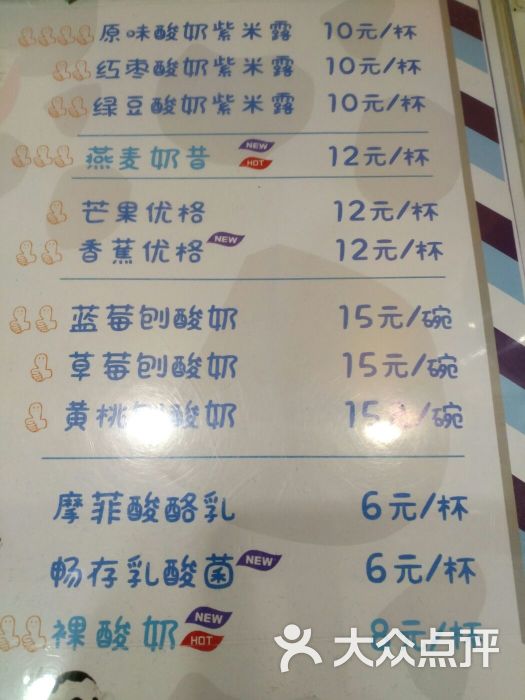 原味酸奶紫米露 10元/杯
红枣酸奶紫米露 10元/杯
绿豆酸奶紫米露 10元/杯
燕麦奶昔 NEW HOT 12元/杯
芒果优格 12元/杯
香蕉优格 NEW 12元/杯
蓝莓刨酸奶 15元/碗
草莓刨酸奶 15元/碗
黄桃刨酸奶 15元/碗
摩菲酸酪乳 6元/杯
畅存乳酸菌 NEW 6元/杯
裸酸奶 NEW HOT 8元/杯
大众点评